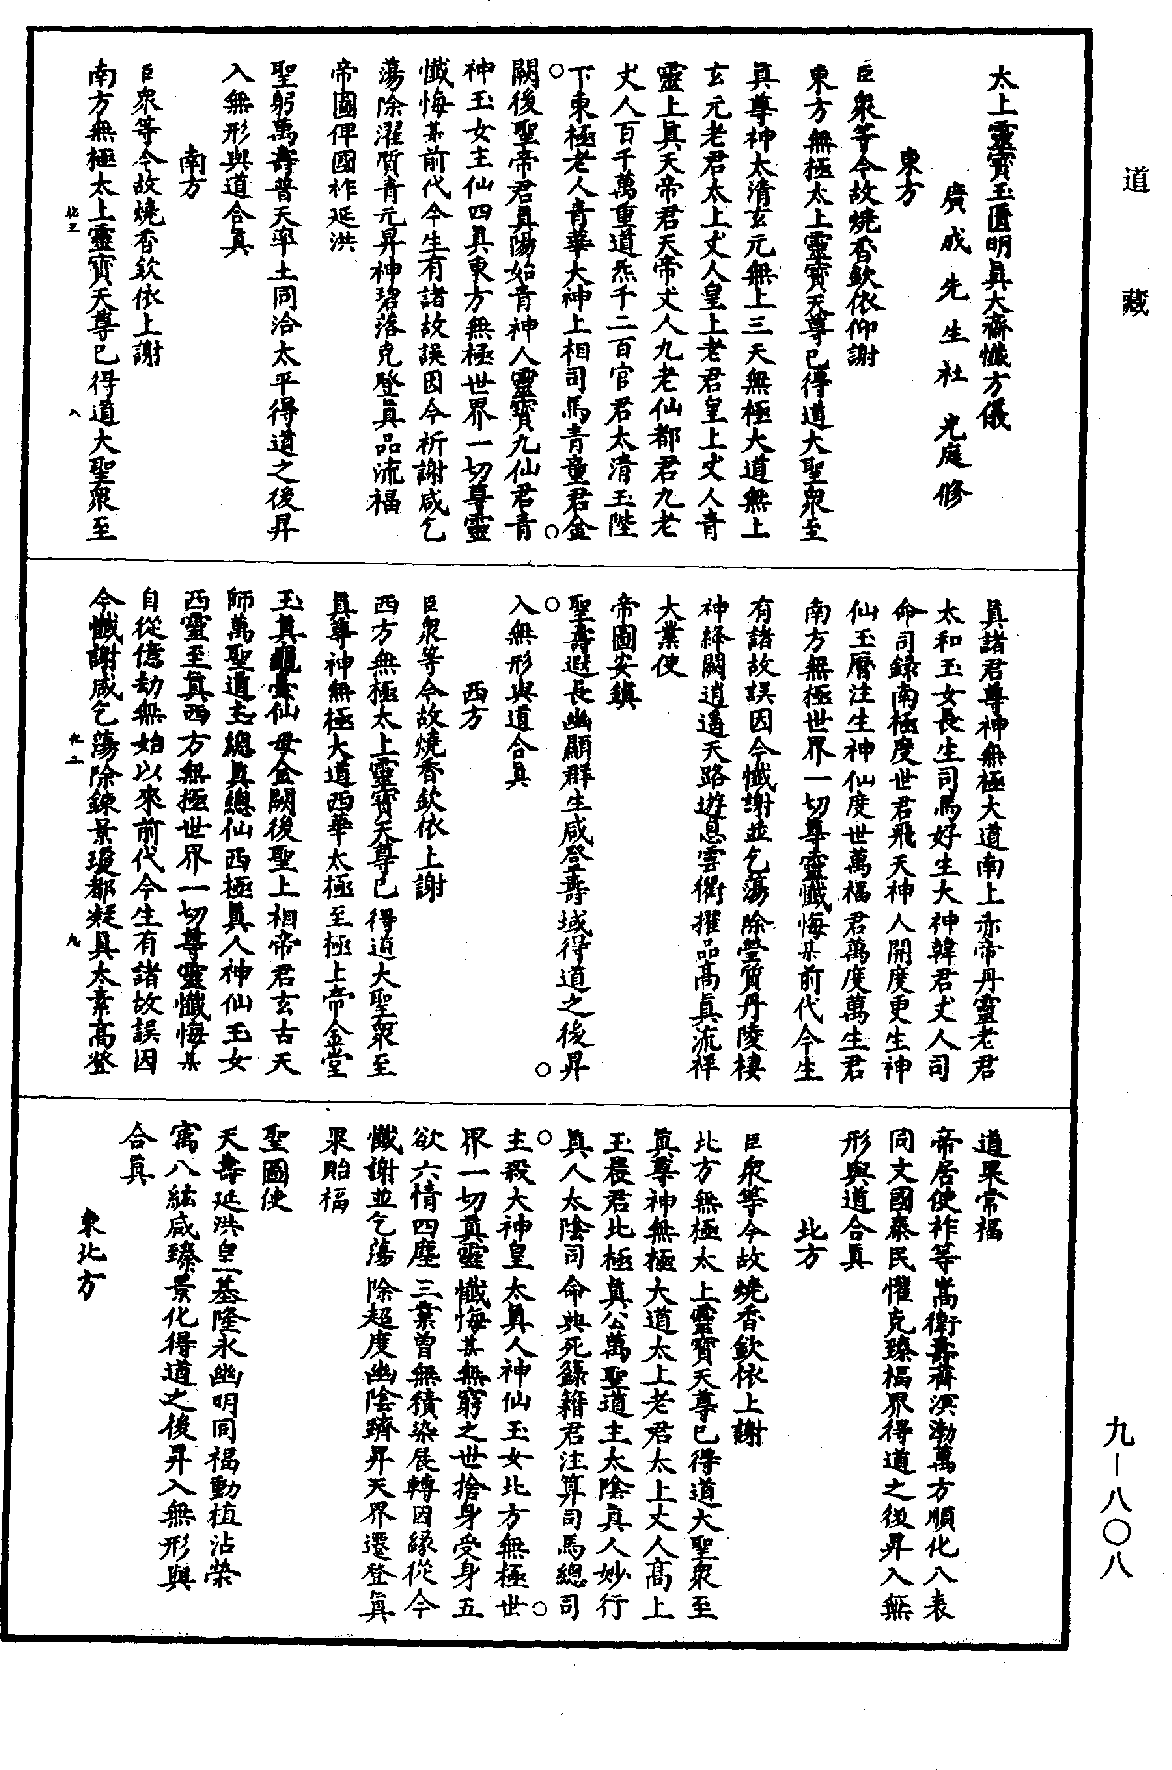 道藏
太上靈寶玉匱明真大齋懺方儀
廣成先生杜光庭修
東方
臣衆等今故燒香歸依仰謝
東方無極太上靈寶天尊已得道大聖衆至
真尊神太清玄元無上三天無極大道無上
玄元老君太上丈人皇上老君皇上丈人青
靈上真天帝君天帝丈人九老仙都君九老
丈人百千萬重道炁千二百官君太清玉陛
下東極老人青華大神上相司馬青童君金
闕後聖帝君真陽始青神人靈寶九仙君青
神玉女主仙四真東方無極世界一切尊靈
懺悔某前代今生有諸故誤因今祈謝咸乞
蕩除濯質青元昇神碧落克登真品流福
帝國俾國祚延洪
聖躬萬壽普天率土同洽太平得道之後昇
入無形與道合真
南方
臣衆等今故燒香歸依上謝
南方無極太上靈寶天尊已得道大聖衆至
真諸君尊神無極大道南上赤帝丹靈老君
太和玉女長生司馬好生大神韓君丈人司
命司錄南極度世君飛天神人開度更生神
仙玉曆注生神仙度世萬福君萬度萬生君
南方無極世界一切尊靈懺悔某前代今生
有諸故誤因今懺謝並乞蕩除瑩質丹陵棲
神絳闕逍遥天路遊息雲衢擢品高真流祥
大業使
帝圖安鎮
聖壽遐長幽顯群生咸登壽域得道之後昇
入無形與道合真
西方
臣衆等今故燒香歸依上謝
西方無極太上靈寶天尊已得道大聖衆至
真尊神無極大道西華太極至極上帝金堂
玉真龜臺仙母金闕後聖上相帝君玄古天
師萬聖道主總真總仙西極真人神仙玉女
西靈至真西方無極世界一切尊靈懺悔某
自從億劫無始以來前代今生有諸故誤因
今懺謝咸乞蕩除鍊景瓊都凝真太素高登
道果常福
帝居使祚等嵩衡壽齊溟渤萬方順化八表
同文國泰民懽克臻福界得道之後昇入無
形與道合真
北方
臣衆等今故燒香歸依上謝
北方無極太上靈寶天尊已得道大聖衆至
真尊神無極大道太上老君太上丈人高上
玉晨君北極真公萬聖道主太陰真人妙行
真人太陰司命典死錄籍君注算司馬總司
主殺大神皇太真人神仙玉女北方無極世
界一切真靈懺悔某無窮之世捨身受身五
欲六情四塵三業曾無積染展轉因緣從今
懺謝並乞蕩除超度幽陰躋昇天界遷登真
果貽福
聖圖使
天壽延洪皇基隆永幽明同福動植沾榮
寓八紘咸臻景化得道之後昇入無形與
合真
東北方
九—八〇八